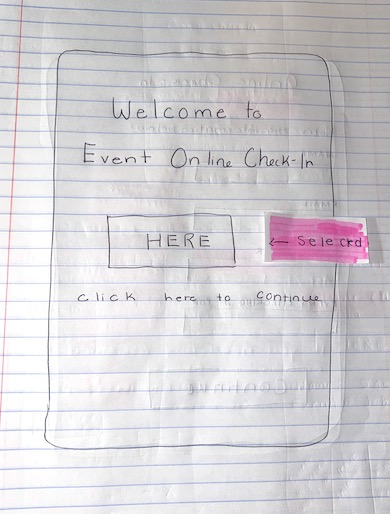 Welcome to
Event Online Check-In
HERE
← Selected
click here to continue